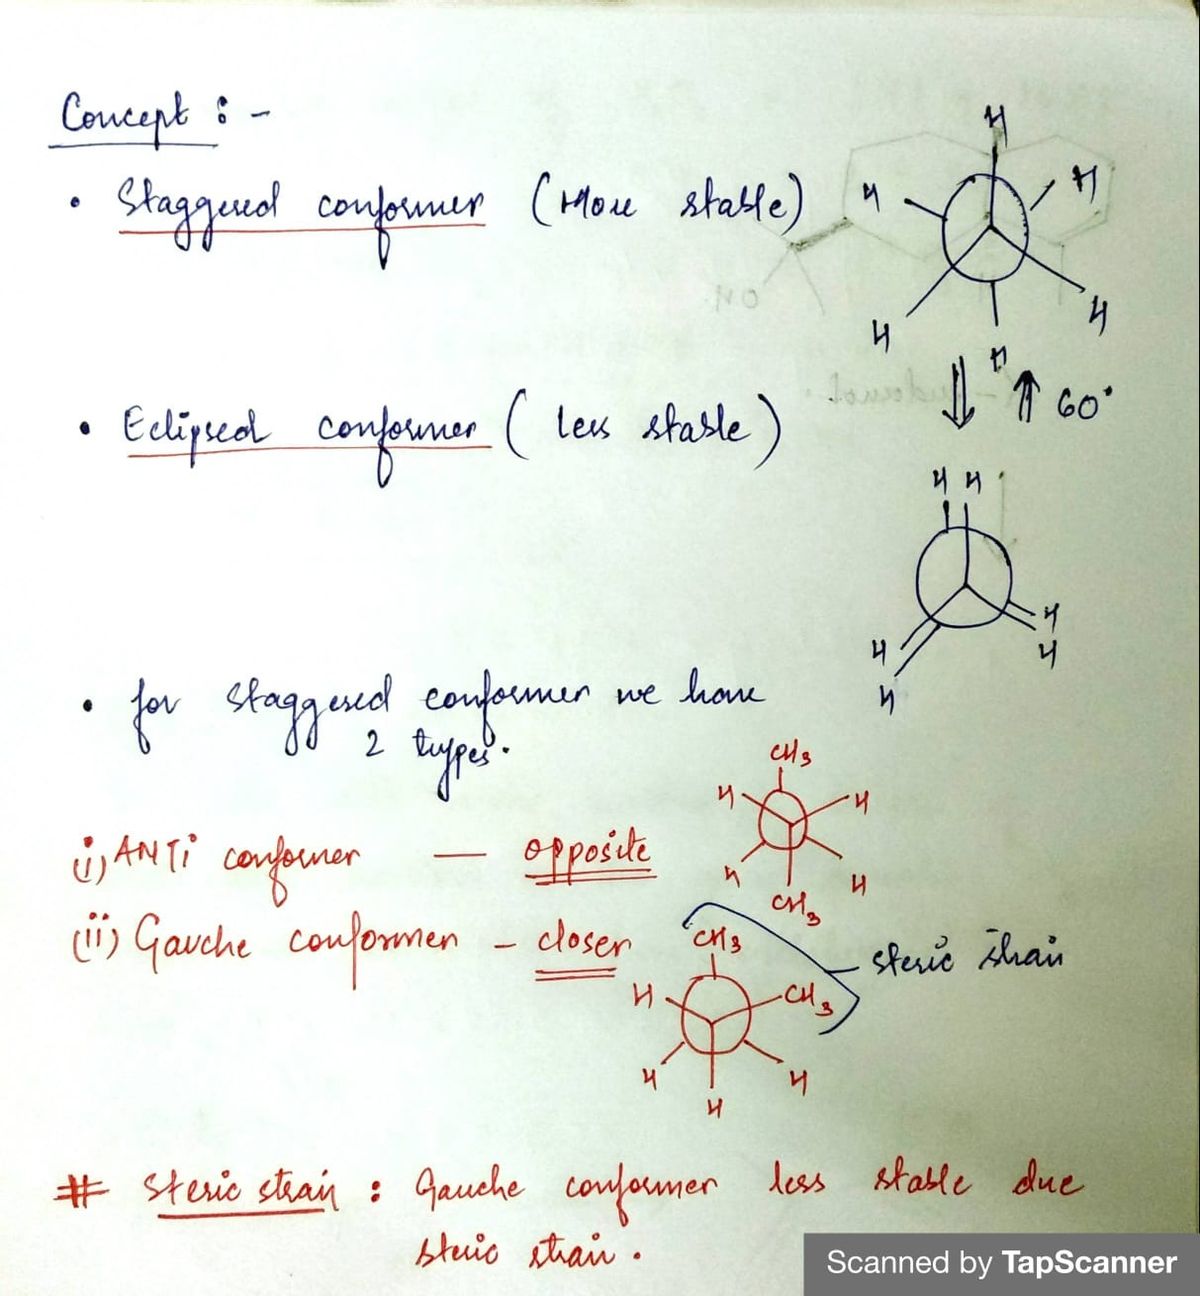 Concept : -
• Staggered conformer (More stable)
H
H
H
H
H
H
60°
• Eclipsed conformer ( less stable )
H H
H
H
H
H
• for staggered conformer we have
2 types.
CH3
H
H
(i) ANTi conformer — opposite
H
H
CH3
(ii) Gauche conformer - closer
CH3
steric strain
H
CH3
H
H
H
# Steric strain : Gauche conformer less stable due
steric strain .
Scanned by TapScanner